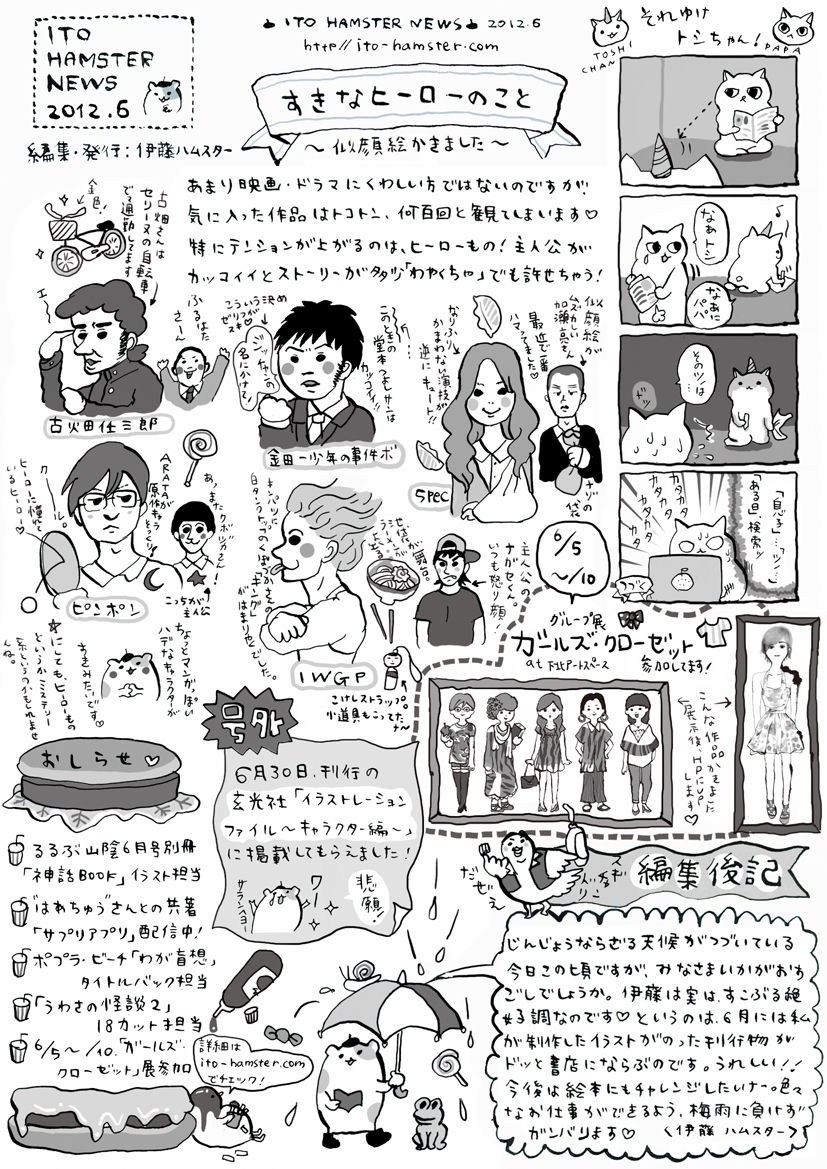 ITO
HAMSTER
NEWS
2012.6
編集・発行：伊藤ハムスター
ITO HAMSTER NEWS 2012.6
http//ito-hamster.com
すきなヒーローのこと
〜似顔絵かきました〜
あまり映画・ドラマにくわしい方ではないのですが、
気に入った作品はトコトン、何百回と観てしまいます♡
特にテンションが上がるのは、ヒーローもの！主人公が
カッコイイとストーリーが多少「わやくちゃ」でも許せちゃう！
それゆけ
トシちゃん！
TOSHI
CHAN
PAPA
なあトシ
なあに
パパ
そのツノは…
ドッ
カタカタ
カタカタ
カタカタ
「息子」「ツノ」
「ある日」検索ッ
つづく
金色！
古畑さんは
セリーヌの自転車
で通勤してます
ふるはた
さーん
古畑任三郎
こういう決め
ゼリフが
スキ♡
ジッチャンの
名にかけて！
このときの
堂本つよしサンは
カッコイイ!!
金田一少年の事件ボ
なりふり
かまわない演技が
逆にキュート!!
最近で一番
ハマってました♡
似顔絵が
ムズかしい
加瀬亮さん
ナゾの
袋
SPEC
クール。
ヒーローに憧れて
いるヒーロー♡
ARATAが
原作キャラ
そっくり
あ、またクボヅカさん！
こっちが
主人公
ピンポン
キンパツに
白タンクトップのくぼづかさんの
「キング」
がはまり役でした。
主人公の
ナガセくん。
いつも怒り顔！
IWGP
こけしストラップ。
小道具もこってた
ナ〜
ちょっとマンガっぽい
ハデなキャラクターが
すきみたいです♡
にしても、ヒーローもの
というかミステリー
系というのかもしれません
ね。
6/5
〜/10
グループ展
ガールズ・クローゼット
at 下北アートスペース
参加してます！
こんな作品かきました
展示後、HPにUP
します♡
おしらせ♡
るるぶ山陰6月号別冊
「神話BOOK」イラスト担当
"はあちゅう"さんとの共著
「サプリアプリ」配信中！
「ポプラ・ビーチ」「わが盲想」
タイトルバック担当
「うわさの怪談2」
18カット担当
6/5〜/10.「ガールズ・
クローゼット」展参加
詳細は
ito-hamster.com
でチェック！
号外
6月30日、刊行の
玄光社「イラストレーション
ファイル〜キャラクター編〜」
に掲載してもらえました！
サランヘヨー
ワー
悲願！
だぜぇ
編集後記
じんじょうならざる天候がつづいている
今日この頃ですが、みなさまいかがおす
ごしでしょうか。伊藤は実は、すこぶる絶
好調なのです♡というのは、6月には私
が制作したイラストがのった刊行物が
ドッと書店にならぶのです。うれしい!!
今後は絵本にもチャレンジしたいナ〜。色々
なお仕事ができるよう、梅雨に負けず
ガンバります♡ <伊藤 ハムスター>